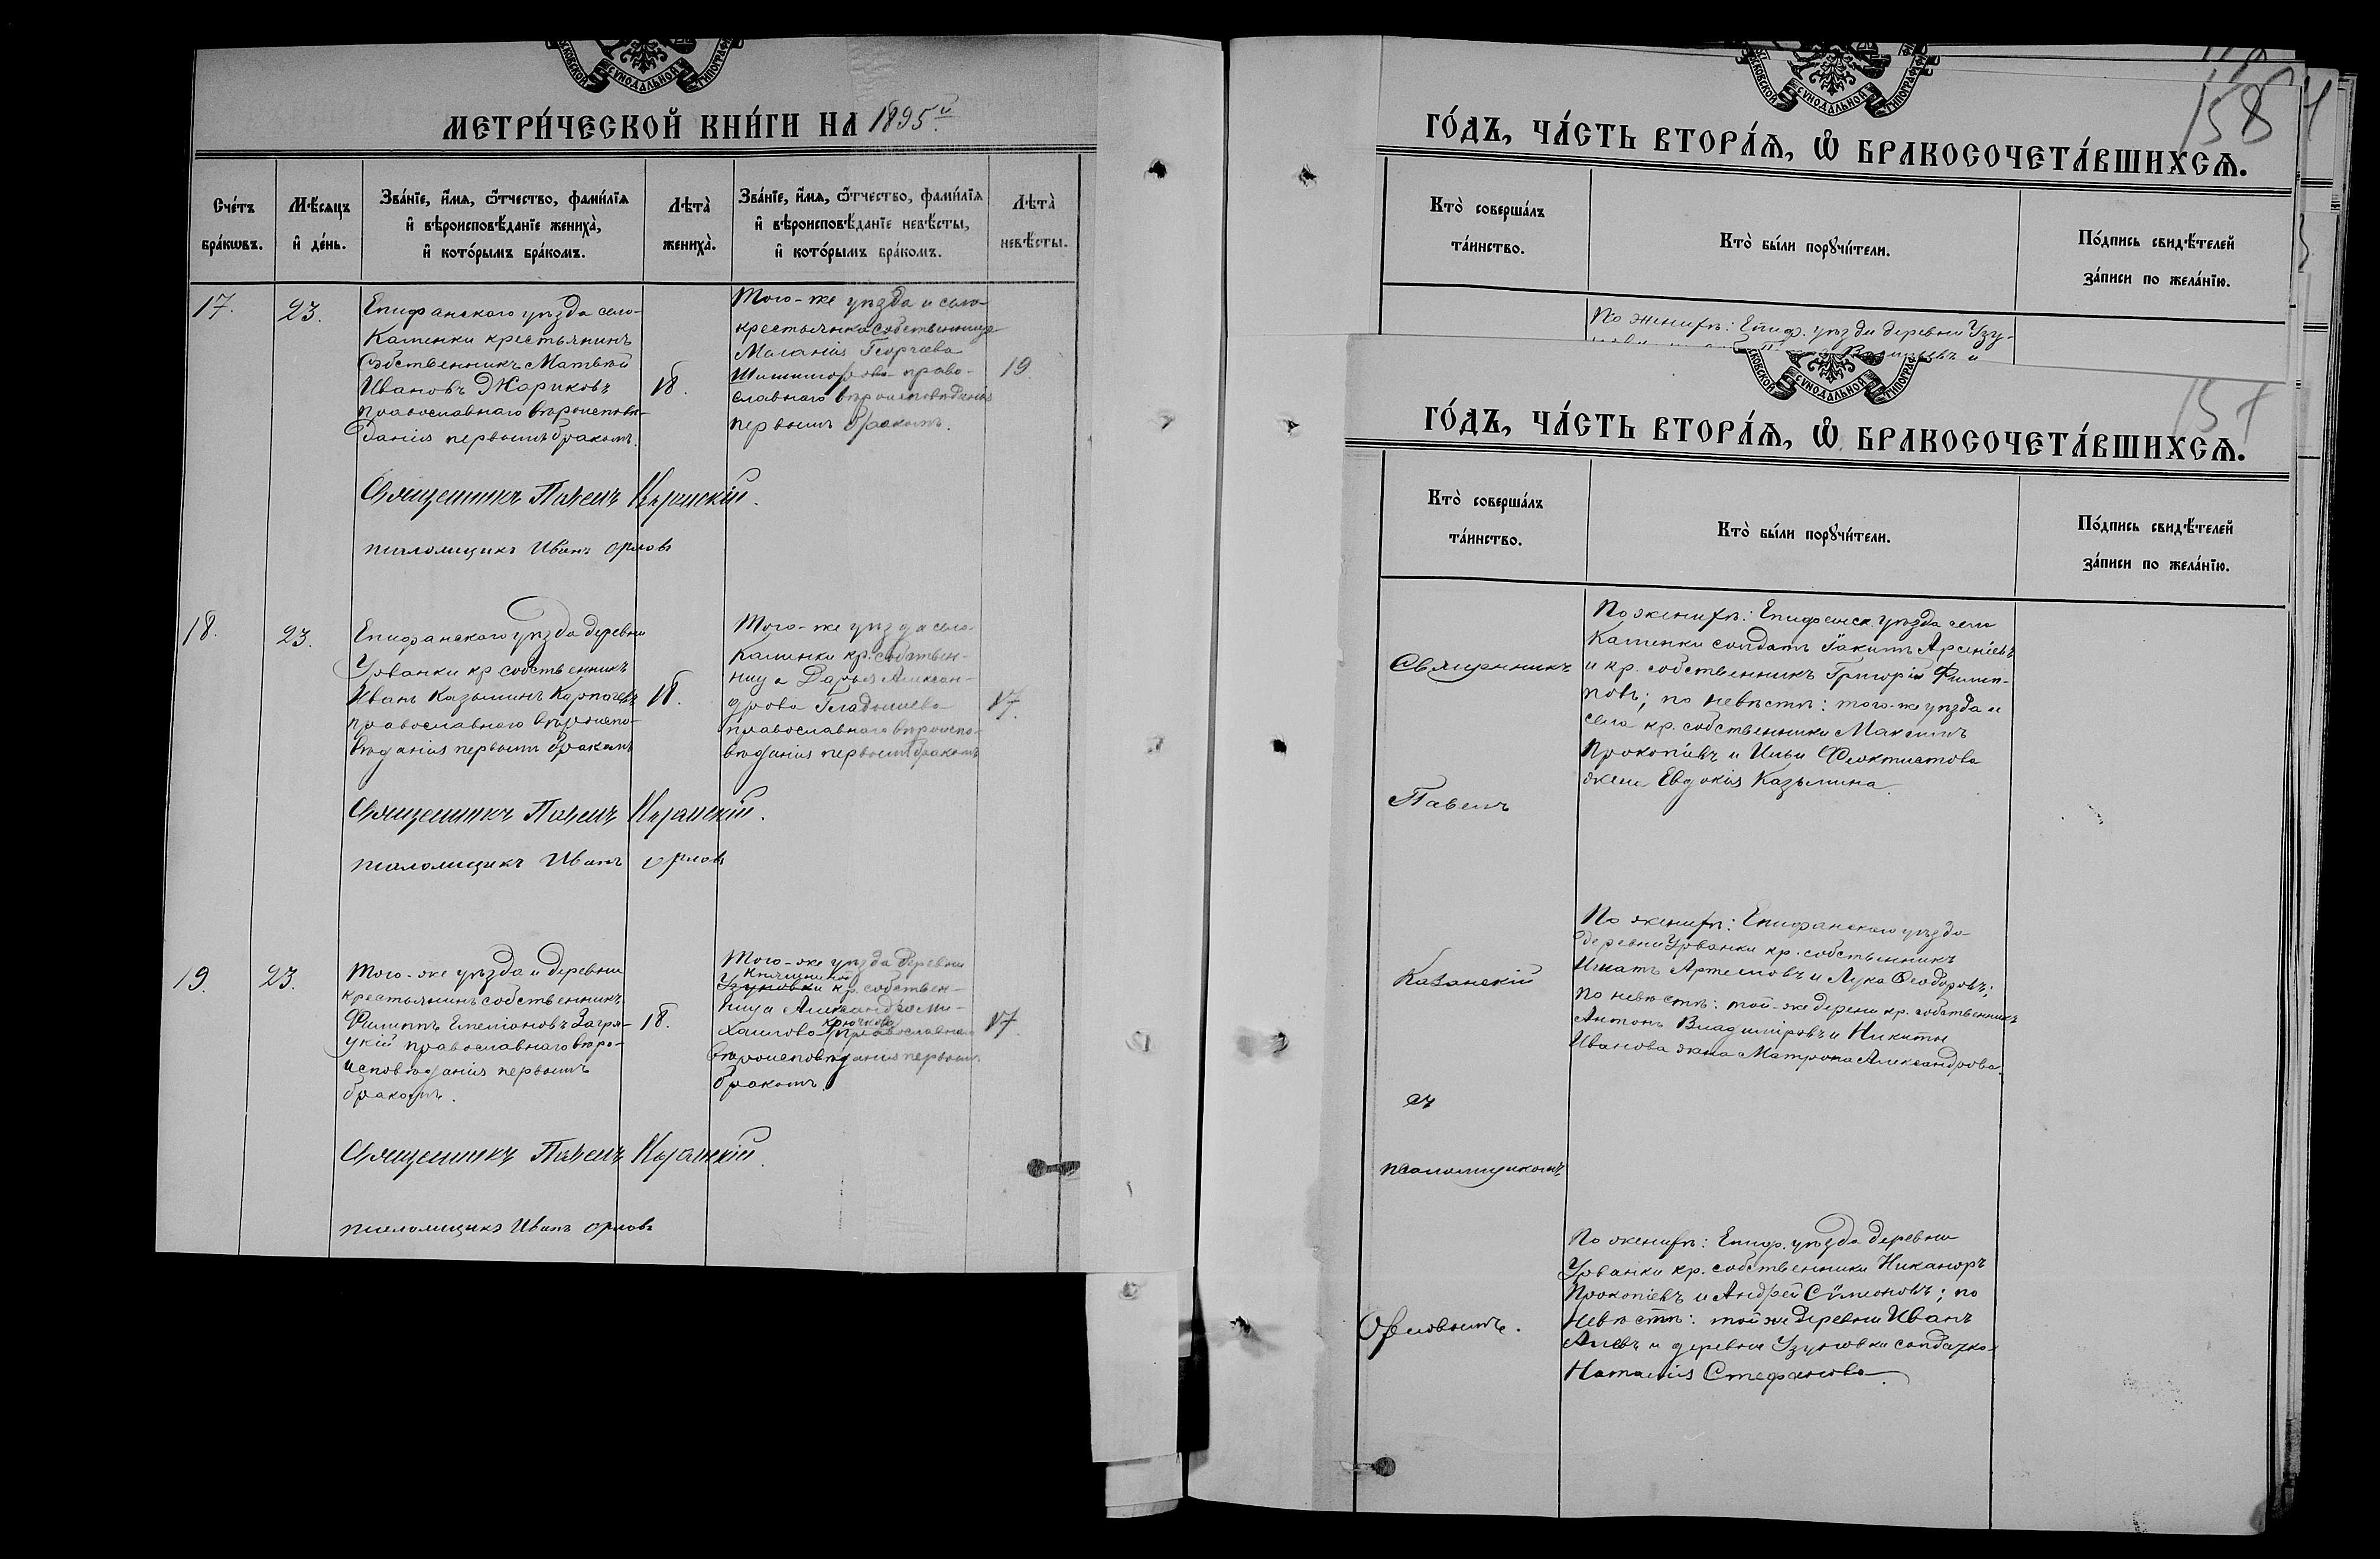 МОСКОВСКОЙ СѴНОДАЛЬНОЙ ТИПОГРАФІИ
МЕТРИ́ЧЕСКОЙ КНИ́ГИ НА 1895.й
Сче́тъ бра́кѡвъ.
Мѣ́сяцъ и҆ де́нь.
Зва́нїе, и҆́мя, ѻ҆́тчество, фами́лїя
и҆ вѣроисповѣ́данїе жениха̀,
и҆ кото́рымъ бра́комъ.
Лѣта̀ жениха̀.
Зва́нїе, и҆́мя, ѻ҆́тчество, фами́лїя
и҆ вѣроисповѣ́данїе невѣ́сты,
и҆ кото́рымъ бра́комъ.
Лѣта̀ невѣ́сты.
17.
23.
Епифанскаго уѣзда села
Каменки крестьянинъ
Собственникъ Матвѣй
Ивановъ Жариковъ
православнаго вѣроисповѣ-
данія первымъ бракомъ.
18.
Того-же уѣзда и села
крестьянка собственница
Маланія Георгіева
право-
славнаго вѣроисповѣданія
первымъ бракомъ.
19.
Священникъ Павелъ Казанскій.
псаломщикъ Иванъ Орловъ
18.
23.
Епифанскаго уѣзда деревни
Урванки кр собственникъ
Иванъ Казьминъ Карпачевъ
православнаго вѣроиспо-
вѣданія первымъ бракомъ
18.
Того-же уѣзда села
Каменки кр. собствен-
ница Дарья Алексан-
дрова Гладышева
православнаго вѣроиспо-
вѣданія первымъ бракомъ
17.
Священникъ Павелъ Казанскій.
псаломщикъ Иванъ Орловъ
19.
23.
Того-же уѣзда и деревни
крестьянинъ собственникъ
Филиппъ Емеліановъ Загря-
цкій православнаго вѣро-
исповѣданія первымъ
бракомъ.
18.
Того-же уѣзда деревни
Узуновки кр. собствен-
ница Александра Ми-
Крючкова
хаилова православнаго
вѣроисповѣданія первымъ
бракомъ.
17.
Священникъ Павелъ Казанскій.
псаломщикъ Иванъ Орловъ
МОСКОВСКОЙ СѴНОДАЛЬНОЙ ТИПОГРАФІИ
158
ГО́ДЪ, ЧА́СТЬ ВТОРА́Ѧ, Ѽ БРАКОСОЧЕТА́ВШИХСѦ.
Кто̀ соверша́лъ та́инство.
Кто̀ бы́ли порꙋчи́тели.
По́дпись свидѣ́телей за́писи по жела́нїю.
По женихѣ: Епиф. уѣзда деревни Узу-
МОСКОВСКОЙ СѴНОДАЛЬНОЙ ТИПОГРАФІИ
157
ГО́ДЪ, ЧА́СТЬ ВТОРА́Ѧ, Ѽ БРАКОСОЧЕТА́ВШИХСѦ.
Кто̀ соверша́лъ та́инство.
Кто̀ бы́ли порꙋчи́тели.
По́дпись свидѣ́телей за́писи по жела́нїю.
Священникъ
Павелъ
Казанскій
съ
псаломщикомъ
Орловымъ.
По женихѣ: Епифанск. уѣзда села
Каменки солдатъ Іакимъ Арсеніевъ
и кр. собственникъ Григорій Филип-
повъ; по невѣстѣ: того-же уѣзда и
села кр. собственники Максимъ
Прокопіевъ и Ильи Феоктистова
жена Евдокія Казьмина.
По женихѣ: Епифанскаго уѣзда
деревни Урванки кр. собственникъ
Игнатъ Артемовъ и Лука Ѳеодоровъ;
по невѣстѣ: той-же дерени кр. собственникъ
Антонъ Владиміровъ и Никиты
Иванова жена Матрона Александрова.
По женихѣ: Епиф. уѣзда деревни
Урванки кр. собственники Никаноръ
Прокопіевъ и Андрей Сѵмеоновъ; по
невѣстѣ: той же деревни Иванъ
и деревни Узуновки солдатка
Наталія Стефанова.